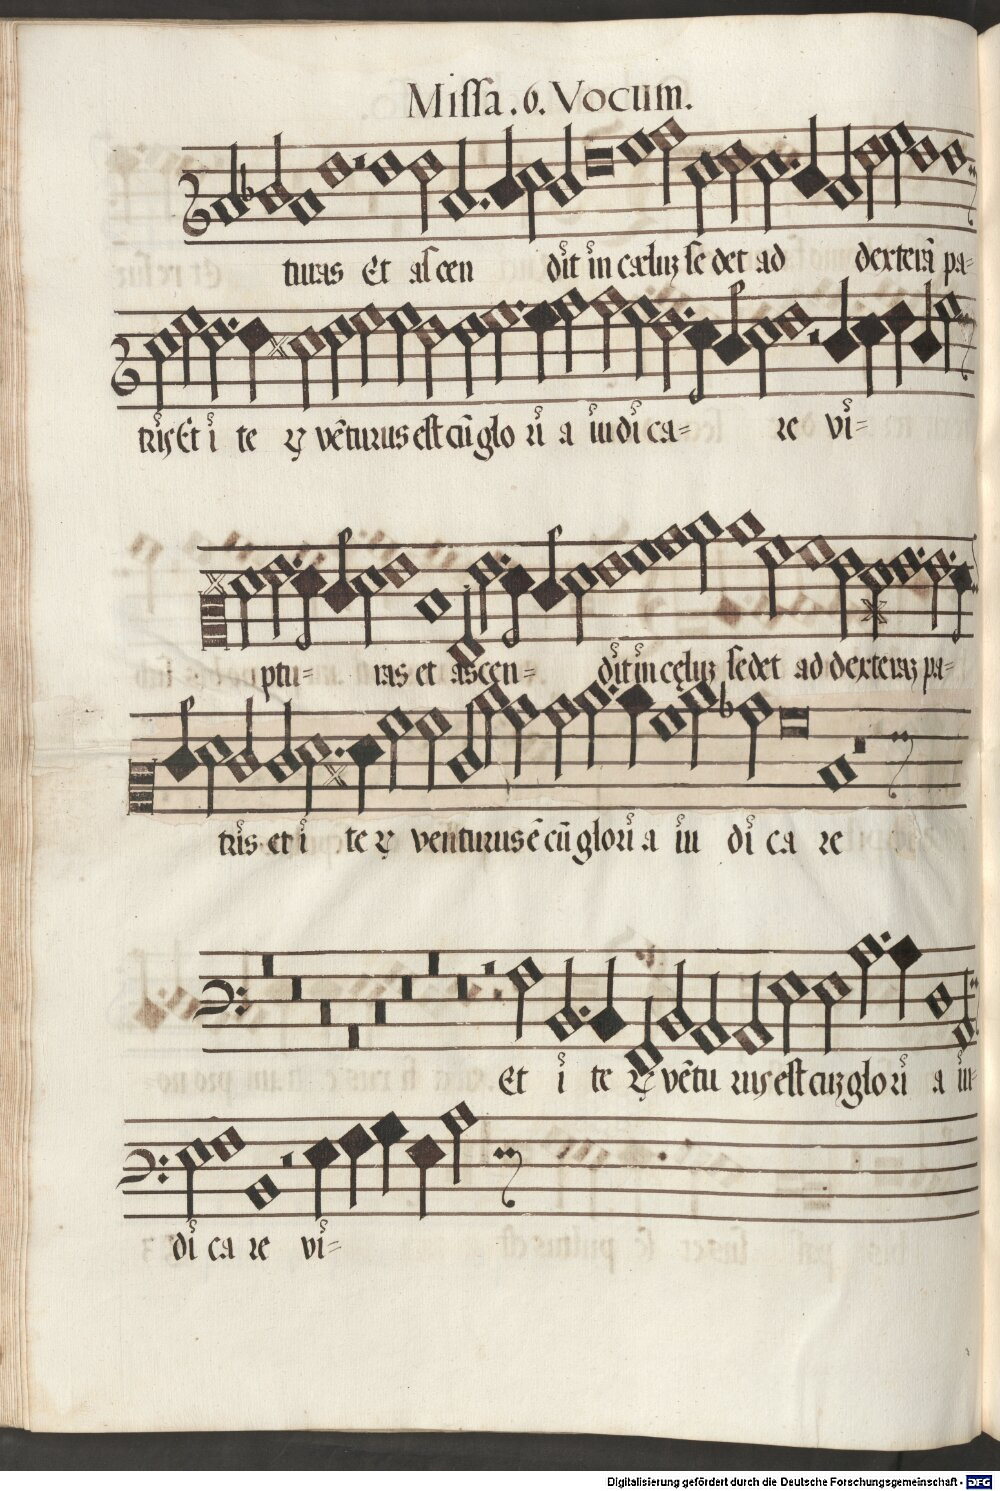 Missa . 6 . Vocum.
turas Et ascen dit in cæluȝ se det ad dexterā pa=
tris Et i te ꝝ vēturus est cū glo ri a iu di ca= re vi=
ptu= ras et ascen= dit in cęluȝ sedet ad dexteraȝ pa=
tris et i te ꝝ venturus ē cū glori a iu di ca re
Et i te ꝝ vētu rus est cuȝ glo ri a iu=
di ca re vi=
Digitalisierung gefördert durch die Deutsche Forschungsgemeinschaft - DFG